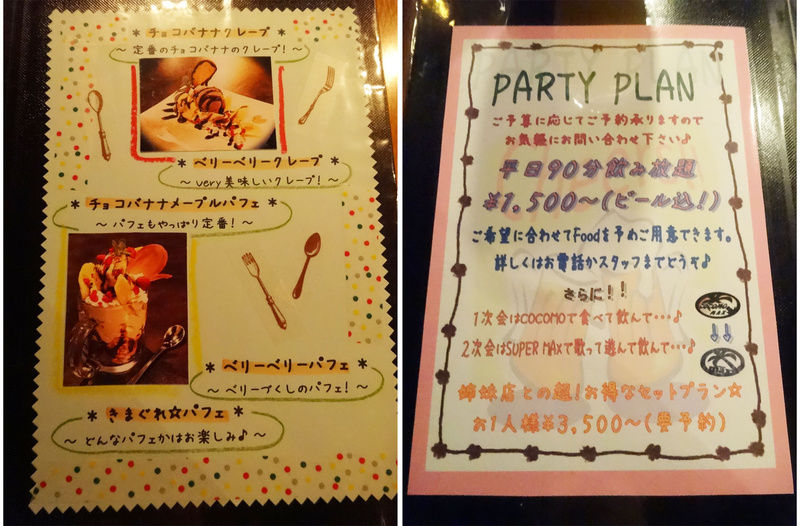 * チョコバナナクレープ *
～ 定番のチョコバナナのクレープ！ ～
* ベリーベリークレープ *
～ very美味しいクレープ！ ～
* チョコバナナメープルパフェ *
～ パフェもやっぱり定番！ ～
* ベリーベリーパフェ *
～ ベリーづくしのパフェ！ ～
* きまぐれ☆パフェ *
～ どんなパフェかはお楽しみ♪ ～
PARTY PLAN
ご予算に応じてご予約承りますので
お気軽にお問い合わせ下さい♪
平日90分飲み放題
¥1,500～(ビール込!)
ご希望に合わせてFoodを予めご用意できます。
詳しくはお電話かスタッフまでどうぞ♪
さらに！！
1次会はCOCOMOで食べて飲んで･･･♪
↓↓
2次会はSUPER MAXで歌って遊んで飲んで･･･♪
姉妹店との超！お得なセットプラン☆
お1人様¥3,500～(要予約)